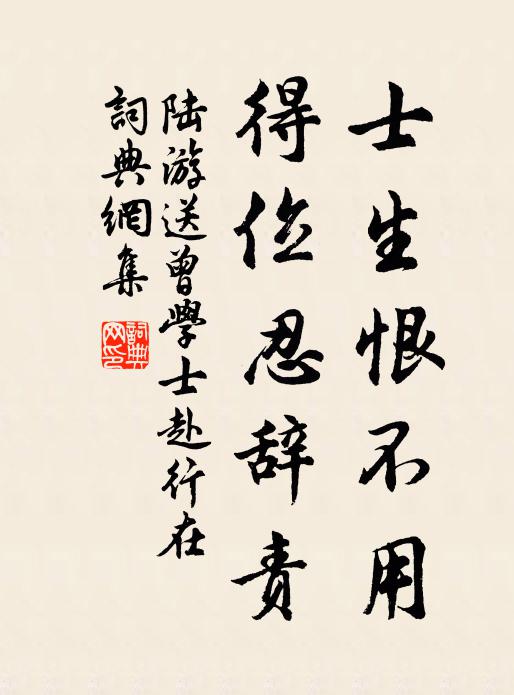 士生恨不用
得位忍辞責
陆游送曾學士赴行在
詞典網集
詞典网印